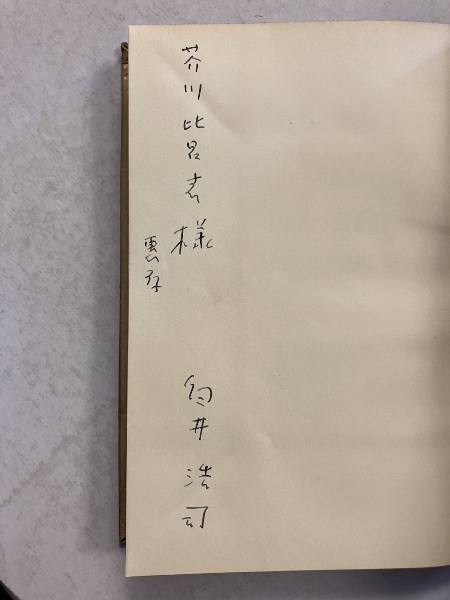 芥川比呂志様
惠存
白井浩司